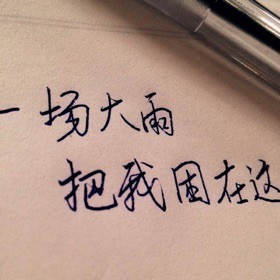 一场大雨
把我困在这